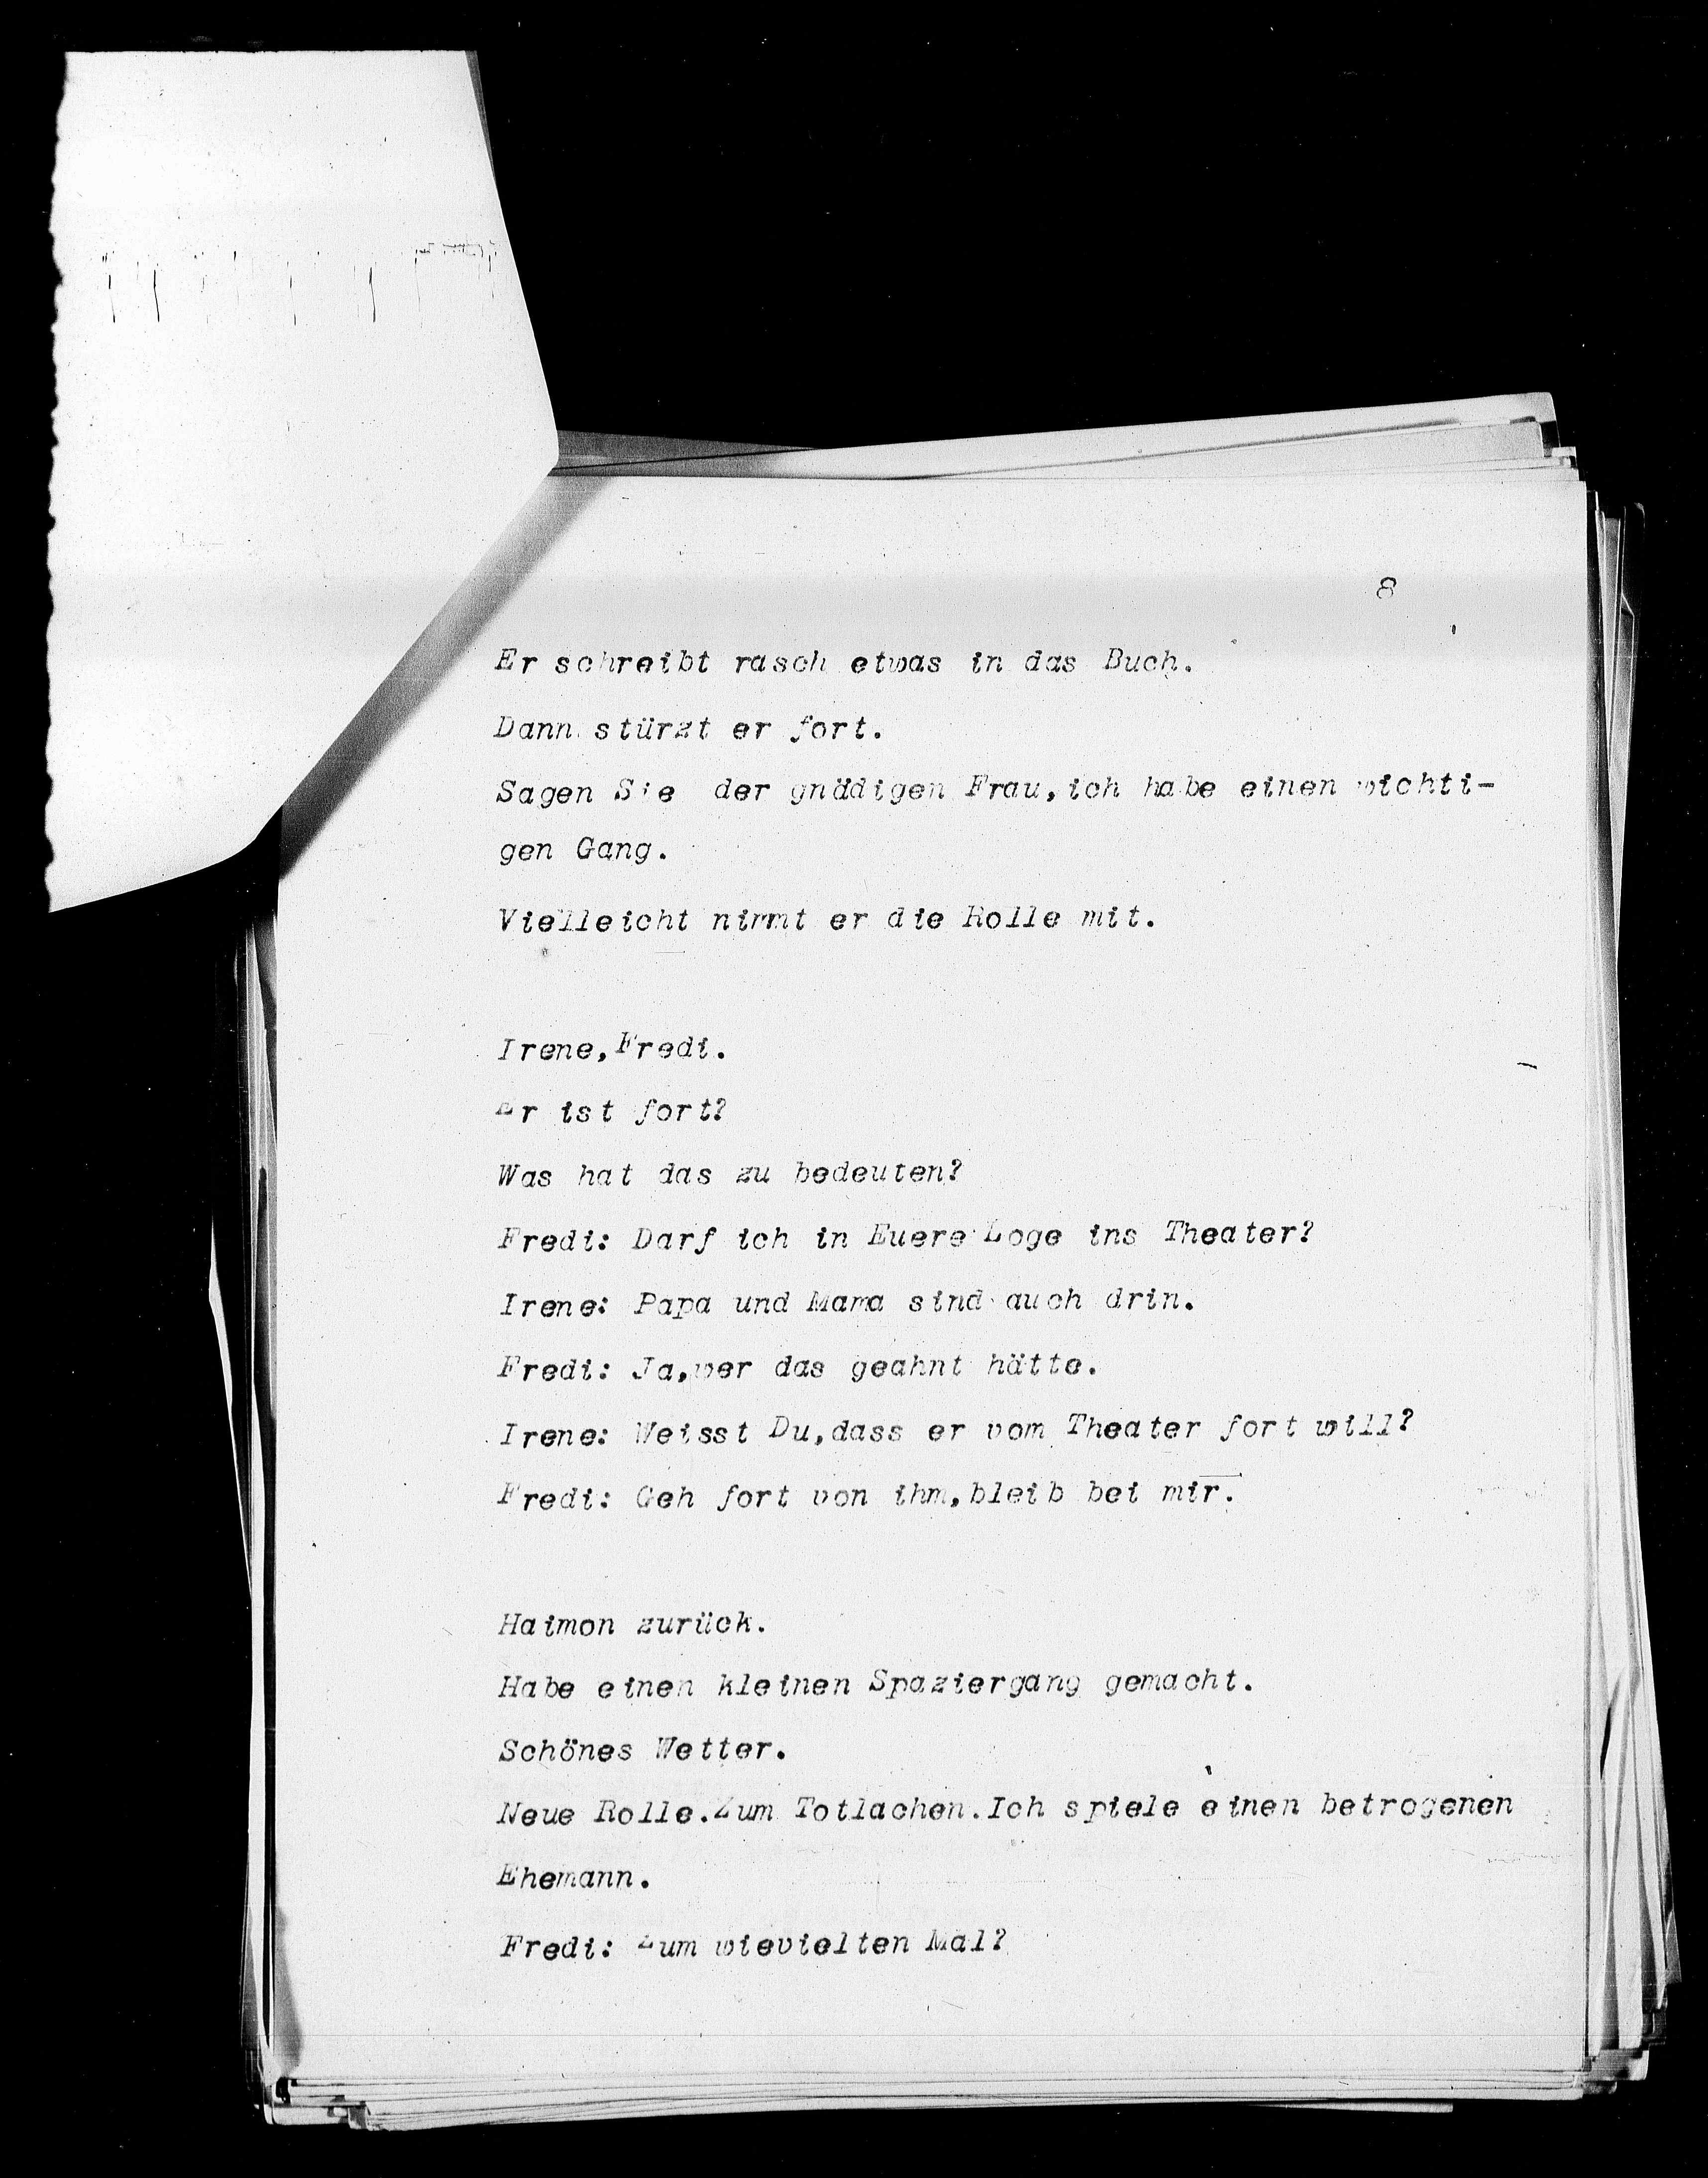 8
Er schreibt rasch etwas in das Buch.
Dann stürzt er fort.
Sagen Sie der gnädigen Frau,ich habe einen wichti-
gen Gang.
Vielleicht nimmt er die Rolle mit.
Irene,Fredi.
Er ist fort?
Was hat das zu bedeuten?
Fredi: Darf ich in Euere Loge ins Theater?
Irene: Papa und Mama sind auch drin.
Fredi: Ja,wer das geahnt hätte.
Irene: Weisst Du,dass er vom Theater fort will?
Fredi: Geh fort von ihm,bleib bei mir.
Haimon zurück.
Habe einen kleinen Spaziergang gemacht.
Schönes Wetter.
Neue Rolle.Zum Totlachen.Ich spiele einen betrogenen
Ehemann.
Fredi: Zum wievielten Mal?